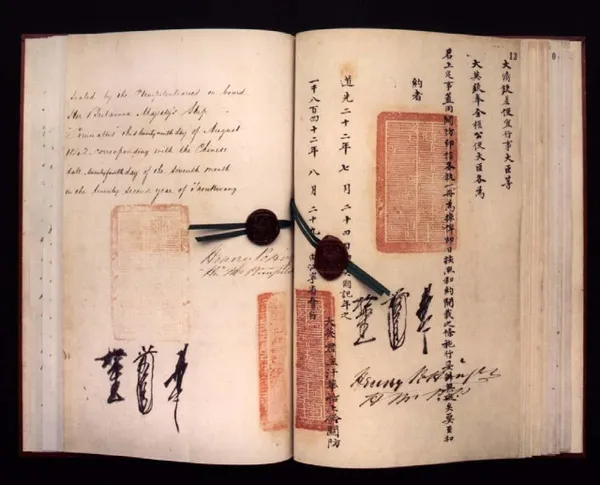 Sealed by the Plenipotentiaries on board
Her Britannic Majesty's Ship
Cornwallis this twenty ninth day of August
1842 corresponding with the Chinese
date, twenty fourth day of the seventh month
in the twenty second year of Taoukwang
Henry
13
大清欽差便宜行事大臣等
大英欽奉全權公使大臣各為
君上定事蓋用關防印信各執一冊為據俾即日按照和約開載之條施行妥辦無礙矣要至和
約者
道光二十二年七月二十四日即英國記年之
一千八百四十二年八月二十九日由江寧省會行
大英君主汗華船上鈐關防
Henry Pottinger